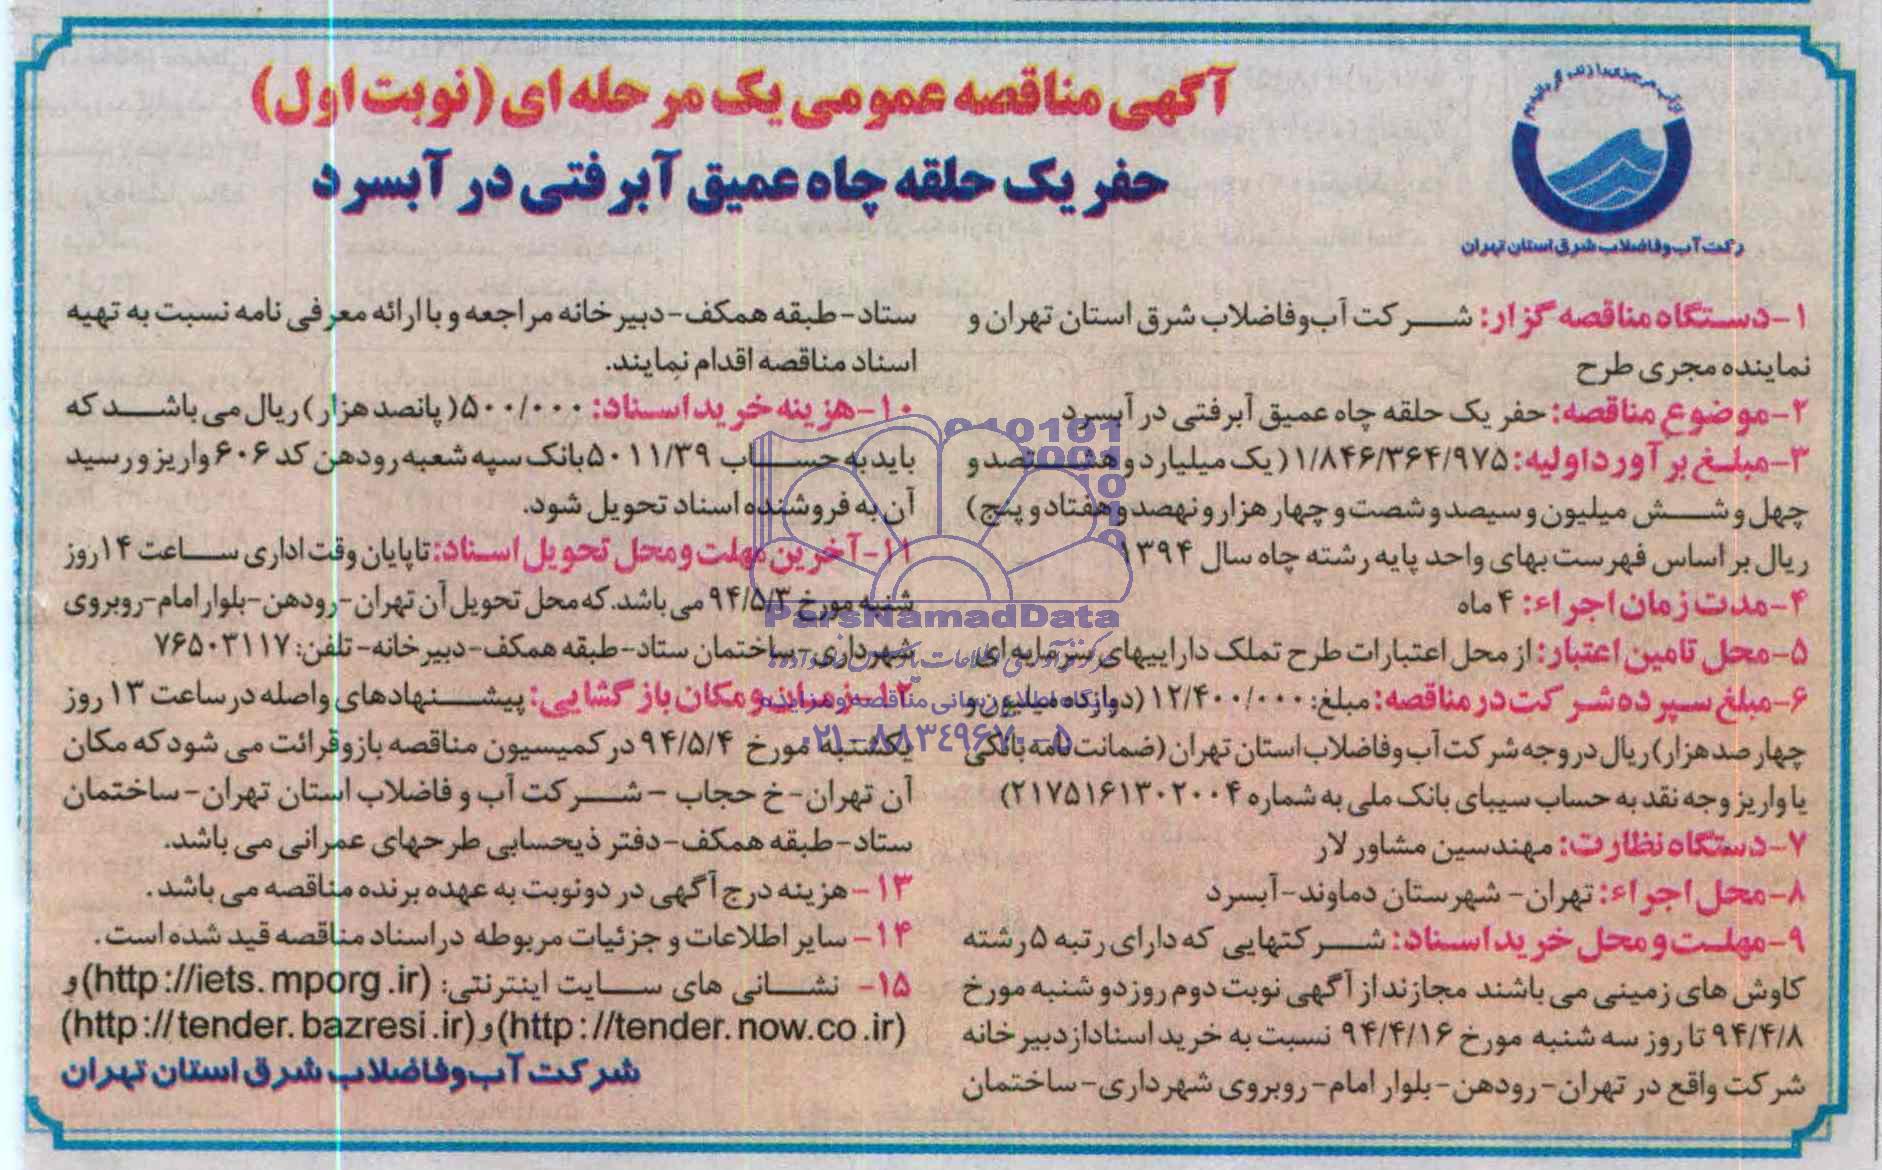 آگهی مناقصه عمومی یک مرحله ای (نوبت اول)
حفر یک حلقه چاه عمیق آبرفتی در آبسرد
رکت آب وفاضلاب شرق استان تهران
۱-دستگاه مناقصه گزار: شرکت آب وفاضلاب شرق استان تهران و
نماینده مجری طرح
۲-موضوع مناقصه: حفر یک حلقه چاه عمیق آبرفتی در آبسرد
۳-مبلغ برآورد اولیه: ۱/۸۴۶/۳۶۴/۹۷۵ (یک میلیارد و هشتصد و
چهل و شش میلیون و سیصد و شصت و چهار هزار و نهصد و هفتاد و پنج)
ریال بر اساس فهرست بهای واحد پایه رشته چاه سال ۱۳۹۴
۴-مدت زمان اجراء: ۴ ماه
۵-محل تامین اعتبار: از محل اعتبارات طرح تملک داراییهای سرمایه ای
۶-مبلغ سپرده شرکت در مناقصه: مبلغ: ۱۲/۴۰۰/۰۰۰ (دوازده میلیون و
چهارصد هزار) ریال در وجه شرکت آب وفاضلاب استان تهران (ضمانت نامه بانکی
یا واریز وجه نقد به حساب سیبای بانک ملی به شماره ۲۱۷۵۱۶۱۳۰۲۰۰۴)
۷-دستگاه نظارت: مهندسین مشاور لار
۸-محل اجراء: تهران- شهرستان دماوند-آبسرد
۹-مهلت و محل خرید اسناد: شرکتهایی که دارای رتبه ۵ رشته
کاوش های زمینی می باشند مجازند از آگهی نوبت دوم روز دو شنبه مورخ
۹۴/۴/۸ تا روز سه شنبه مورخ ۹۴/۴/۱۶ نسبت به خرید اسناد از دبیر خانه
شرکت واقع در تهران-رودهن-بلوار امام-روبروی شهرداری-ساختمان
ستاد-طبقه همکف-دبیر خانه مراجعه و با ارائه معرفی نامه نسبت به تهیه
اسناد مناقصه اقدام نمایند.
۱۰-هزینه خرید اسناد: ۵۰۰/۰۰۰(پانصد هزار) ریال می باشد که
باید به حساب ۵۰۱۱/۳۹ بانک سپه شعبه رودهن کد ۶۰۶ واریز و رسید
آن به فروشنده اسناد تحویل شود.
۱۱-آخرین مهلت و محل تحویل اسناد: تاپایان وقت اداری ساعت ۱۴ روز
شنبه مورخ ۹۴/۵/۳ می باشد. که محل تحویل آن تهران-رودهن-بلوار امام-روبروی
شهرداری-ساختمان ستاد-طبقه همکف-دبیر خانه-تلفن: ۷۶۵۰۳۱۱۷
۱۲-زمان و مکان بازگشایی: پیشنهادهای واصله در ساعت ۱۳ روز
یکشنبه مورخ ۹۴/۵/۴ در کمیسیون مناقصه باز و قرائت می شود که مکان
آن تهران-خ حجاب - شرکت آب و فاضلاب استان تهران-ساختمان
ستاد-طبقه همکف-دفتر ذیحسابی طرحهای عمرانی می باشد.
۱۳-هزینه درج آگهی در دونوبت به عهده برنده مناقصه می باشد.
۱۴-سایر اطلاعات و جزئیات مربوطه در اسناد مناقصه قید شده است.
۱۵- نشانی های سایت اینترنتی: (http://iets.mporg.ir) و
(http://tender.now.co.ir) و (http://tender.bazresi.ir)
شرکت آب وفاضلاب شرق استان تهران
ParsNamadData
پایگاه اطلاع رسانی مناقصه و مزایده
۰۲۱-۸۸۳۴۹۶۷۰-۵